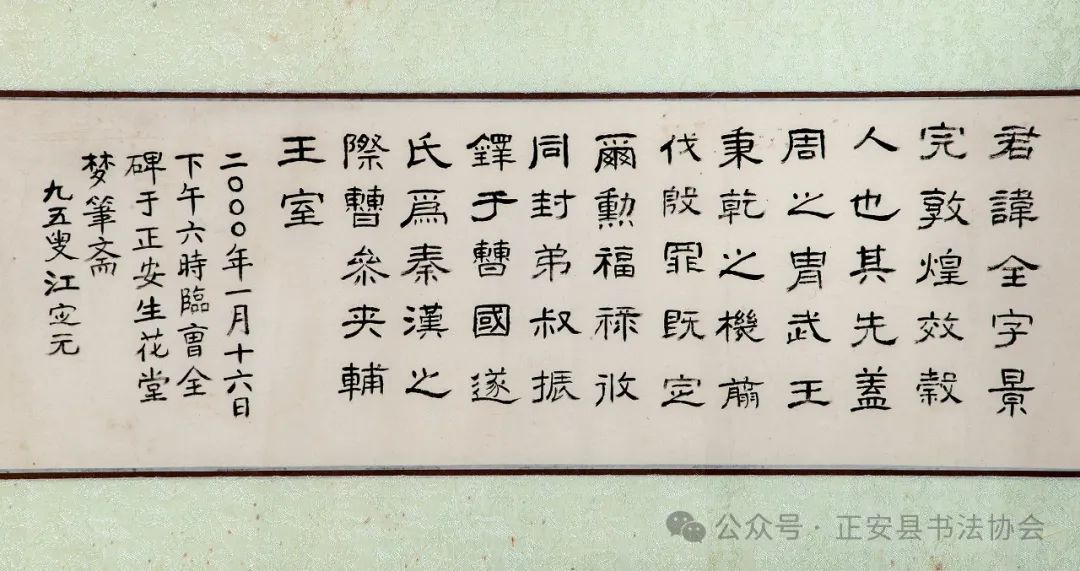 君諱全字景
完敦煌效穀
人也其先蓋
周之胄武王
秉乾之機翦
伐殷罪既定
爾勳福祿攸
同封弟叔振
鐸于曹國遂
氏爲秦漢之
際曹參夾輔
王室
二〇〇〇年一月十六日
下午六時臨曹全
碑于正安生花堂
梦筆斋
九五叟江定元
公众号·正安县书法协会